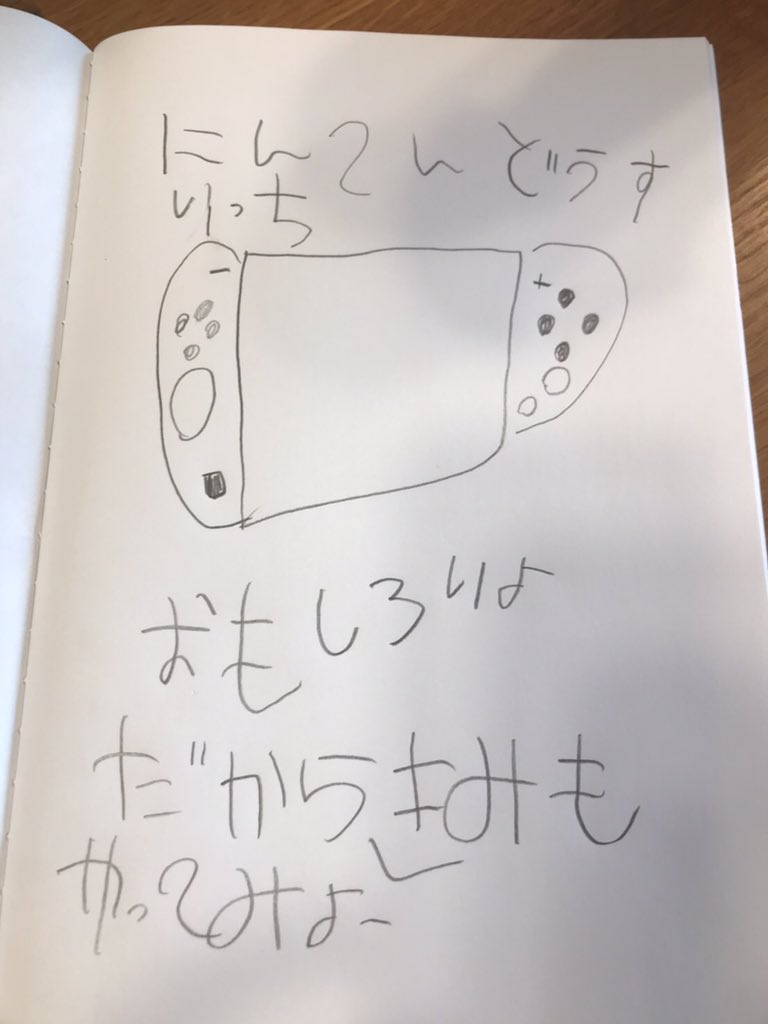 にんてんどうす
りっち
おもしろいよ
だからきみも
やってみよー